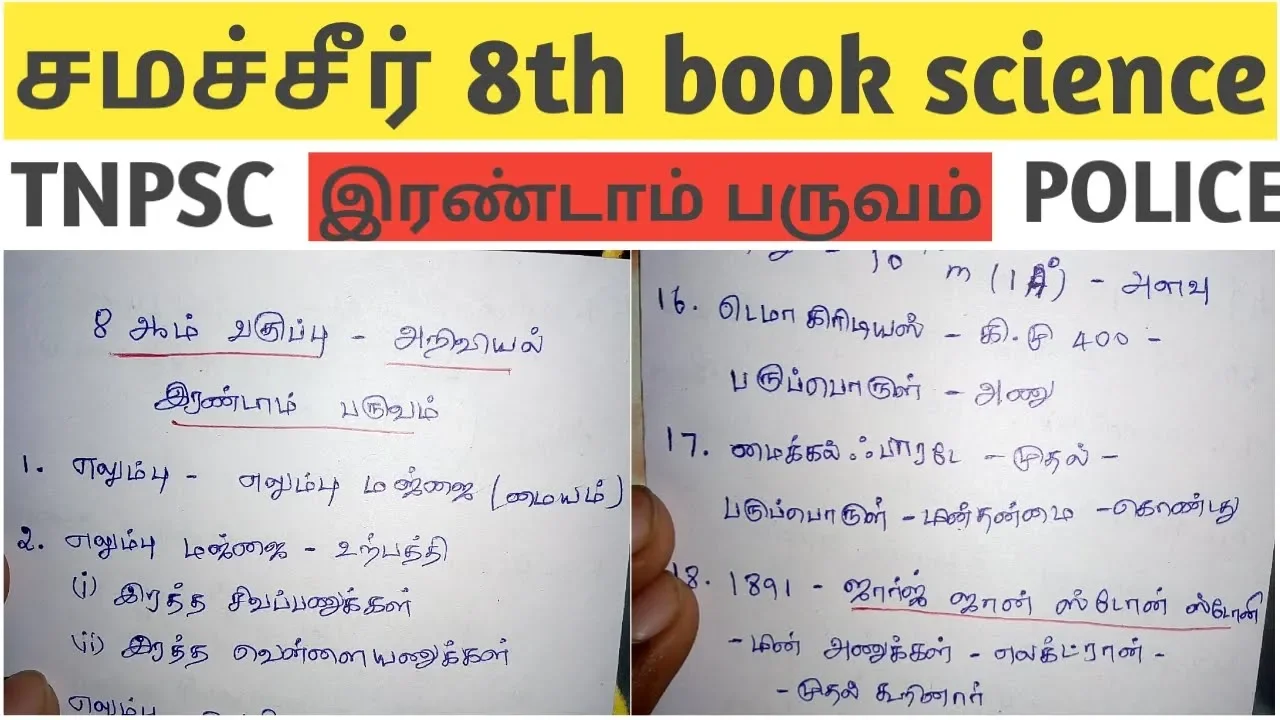 சமச்சீர் 8th book science
TNPSC இரண்டாம் பருவம் POLICE
8 ஆம் வகுப்பு - அறிவியல்
இரண்டாம் பருவம்
1. எலும்பு - எலும்பு மஜ்ஜை (மையம்)
2. எலும்பு மஜ்ஜை - உற்பத்தி
(i) இரத்த சிவப்பணுக்கள்
(ii) இரத்த வெள்ளையணுக்கள்
எலும்பு
10 m (1A°) - அளவு
16. டெமாகிரிடியஸ் - கி.மு 400 -
பருப்பொருள் - அணு
17. மைக்கல் ஃபாரடே - முதல் -
பருப்பொருள் - மின்தன்மை - கொண்டது
18. 1891 - ஜார்ஜ் ஜான் ஸ்டோன் ஸ்டோனி
- மின் அணுக்கள் - எலக்ட்ரான் -
- முதல் கூறினார்